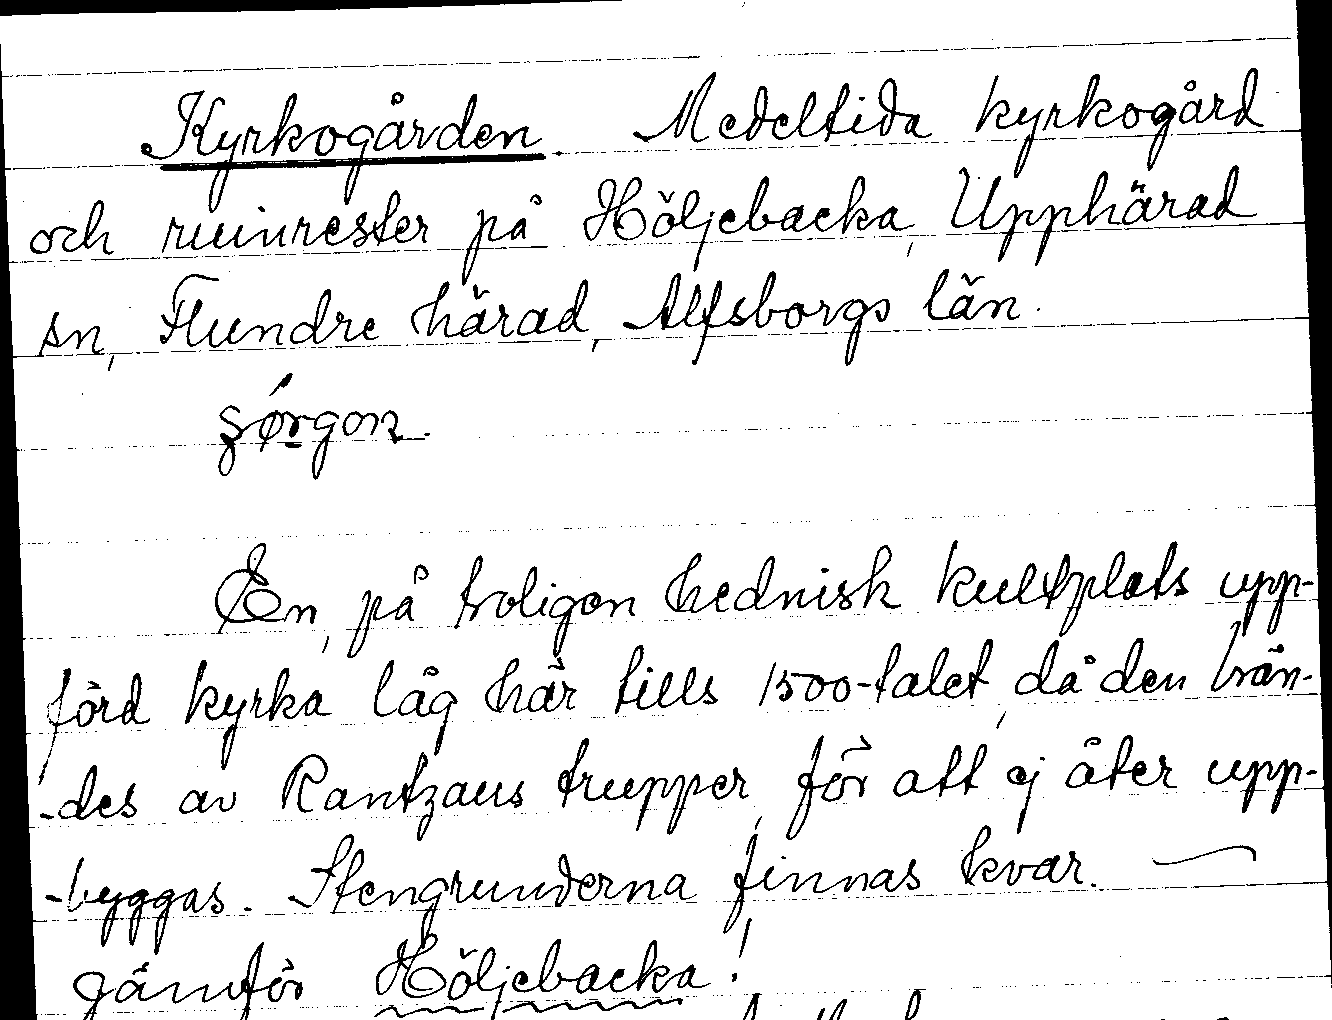 Kyrkogården. Medeltida kyrkogård
och ruinrester på Höljebacka, Upphärad
sn, Flundre härad, Älfsborgs län.
En, på troligen hednisk kultplats upp-
förd kyrka låg här tills 1500-talet, då den brän-
-des av Rantzaus trupper, för att ej åter upp-
-byggas. Stengrunderna finnas kvar. —
Jämför Höljebacka!